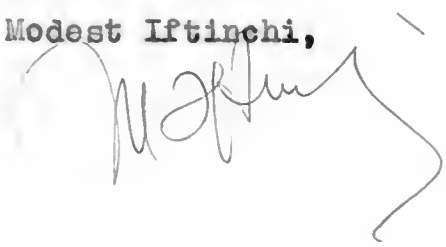 Modest Iftinchi,